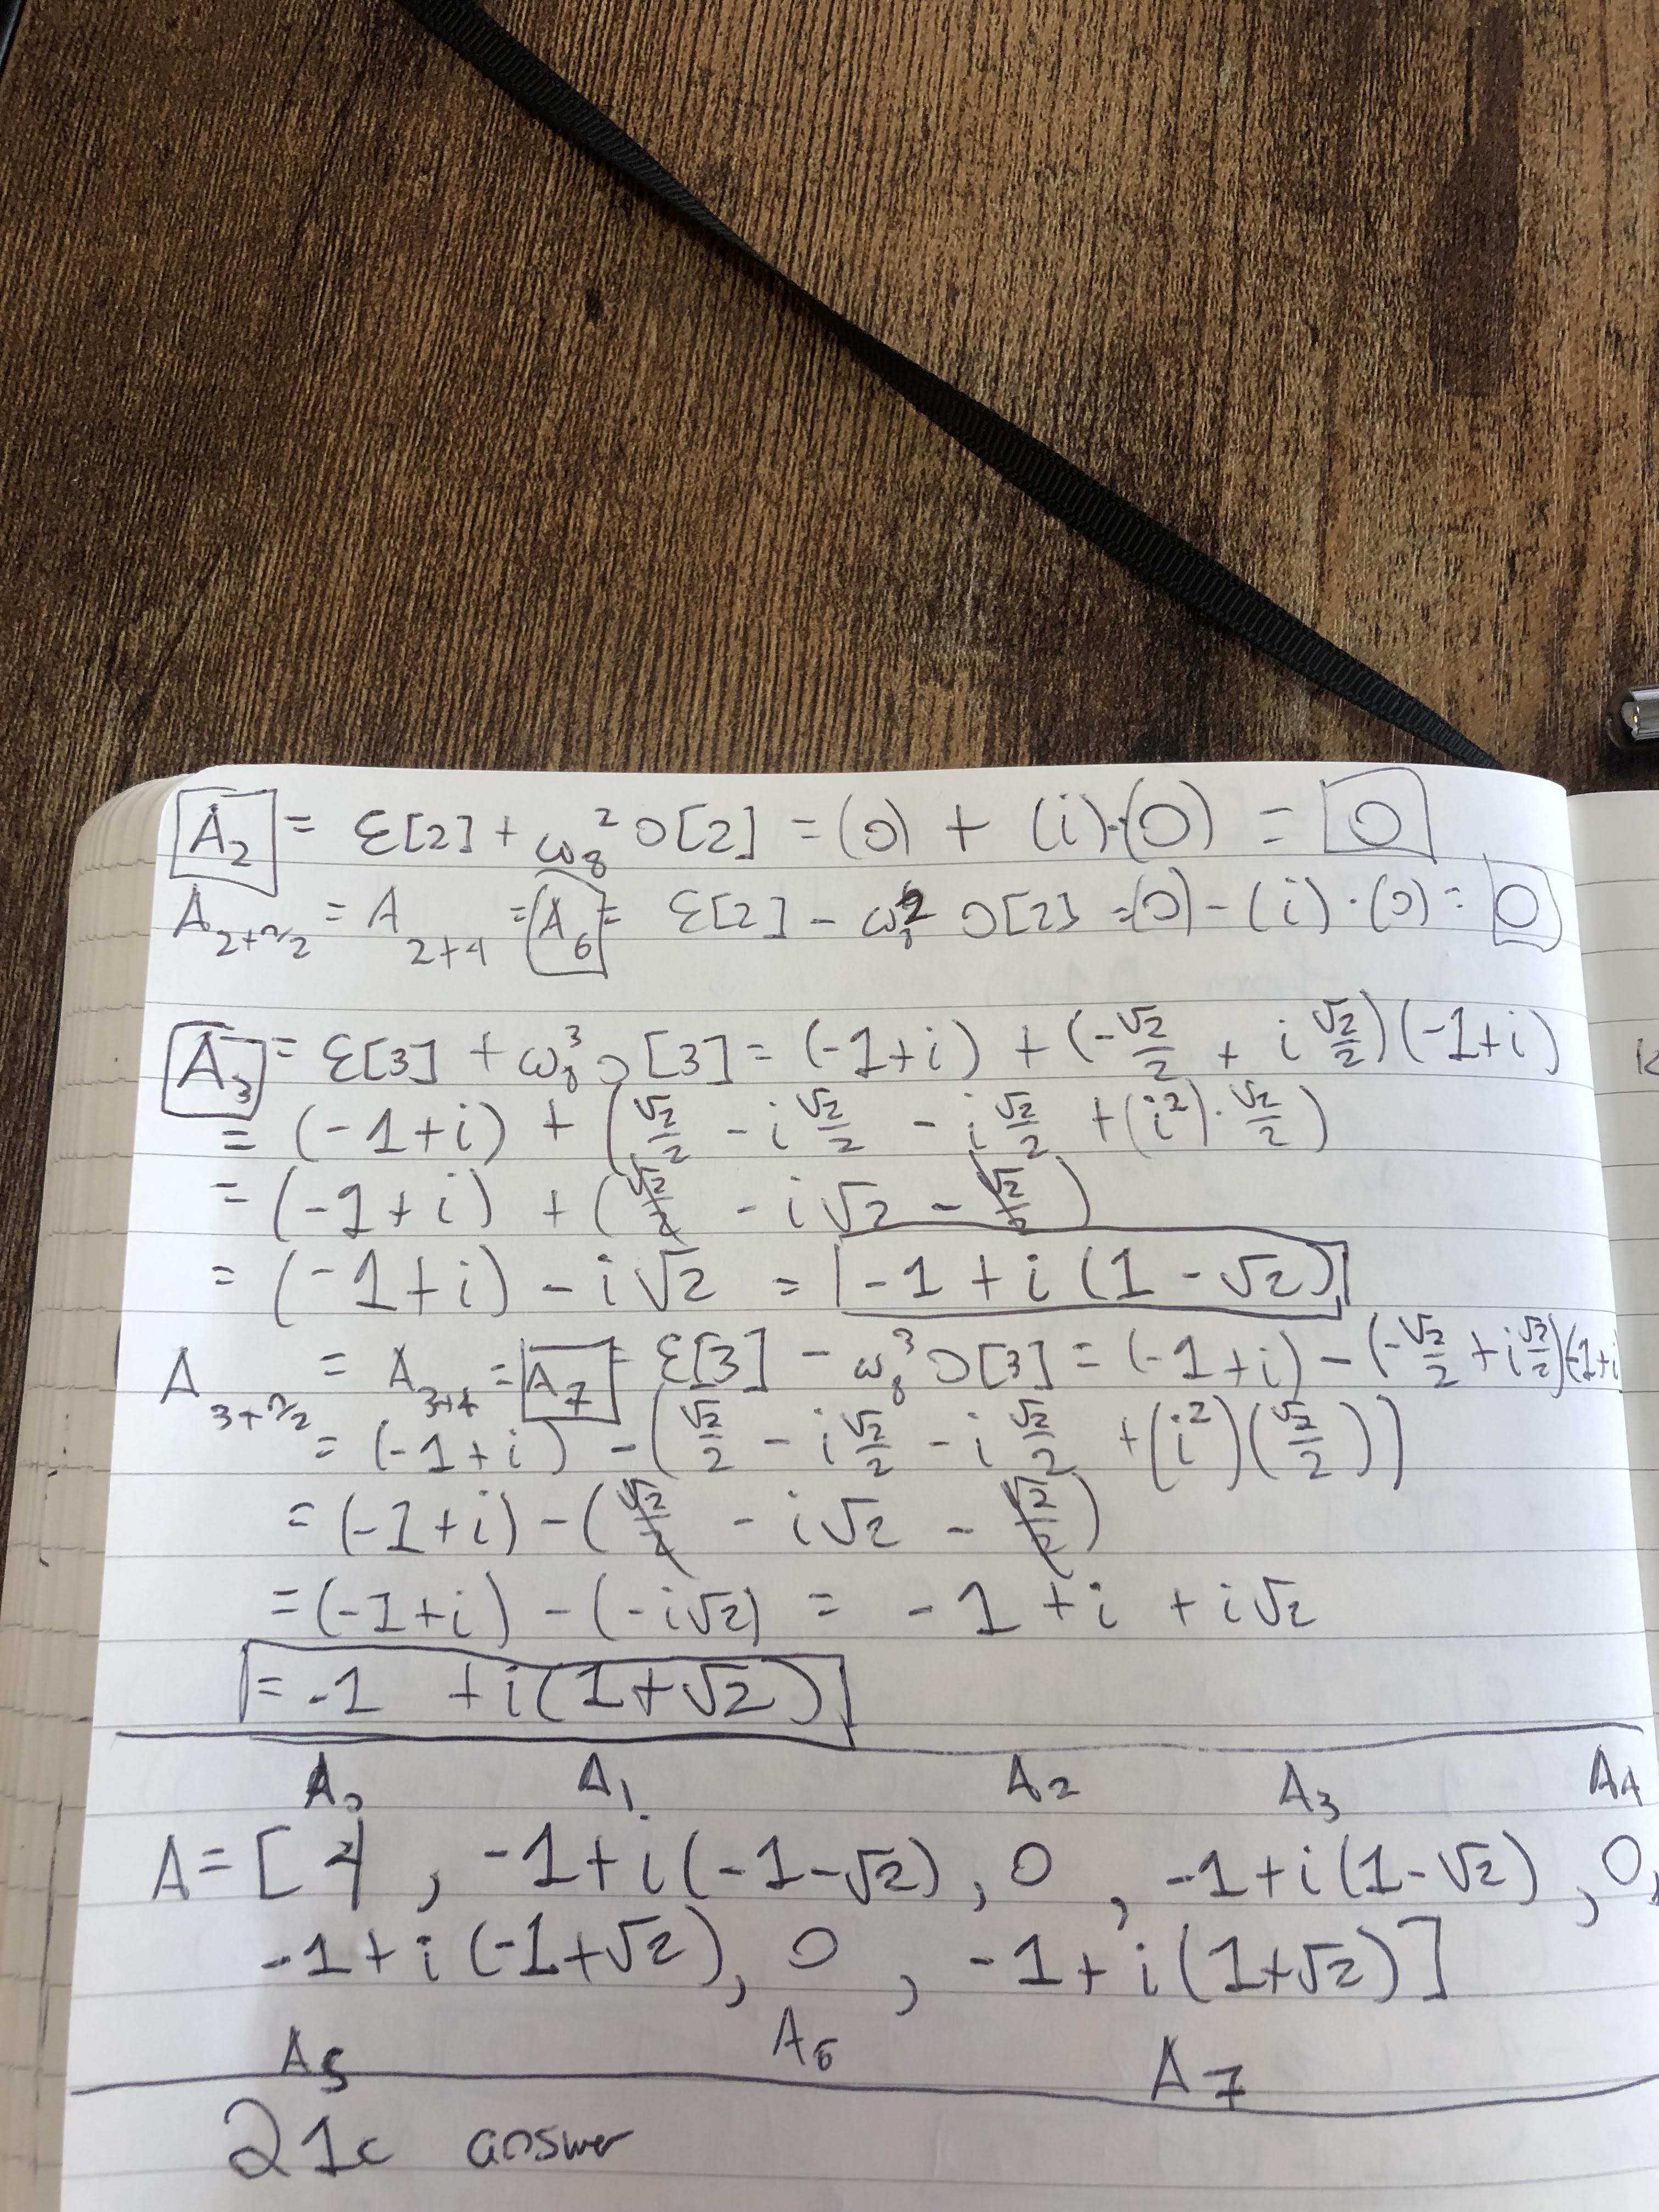 A₂ = Ɛ[2] + ω₈² O[2] = (0) + (i)·(0) = 0
A₂₊ₙ/₂ = A₂₊₄ = A₆ = Ɛ[2] - ω₈² O[2] = (0) - (i)·(0) = 0
A₃ = Ɛ[3] + ω₈³ O[3] = (-1+i) + (-√2/2 + i √2/2)(-1+i)
= (-1+i) + (√2/2 - i √2/2 - i √2/2 + (i²)·√2/2)
= (-1+i) + (√2/2 - i√2 - √2/2)
= (-1+i) - i√2 = -1 + i(1-√2)
A₃₊ₙ/₂ = A₃₊₄ = A₇ = Ɛ[3] - ω₈³ O[3] = (-1+i) - (-√2/2 + i √2/2)(-1+i
= (-1+i) - (√2/2 - i √2/2 - i √2/2 + (i²)(√2/2))
= (-1+i) - (√2/2 - i√2 - √2/2)
= (-1+i) - (-i√2) = -1 + i + i√2
= -1 + i(1+√2)
A₀ A₁ A₂ A₃ A₄
A = [4, -1+i(-1-√2), 0, -1+i(1-√2), 0,
-1+i(-1+√2), 0, -1+i(1+√2)]
A₅ A₆ A₇
21c answer